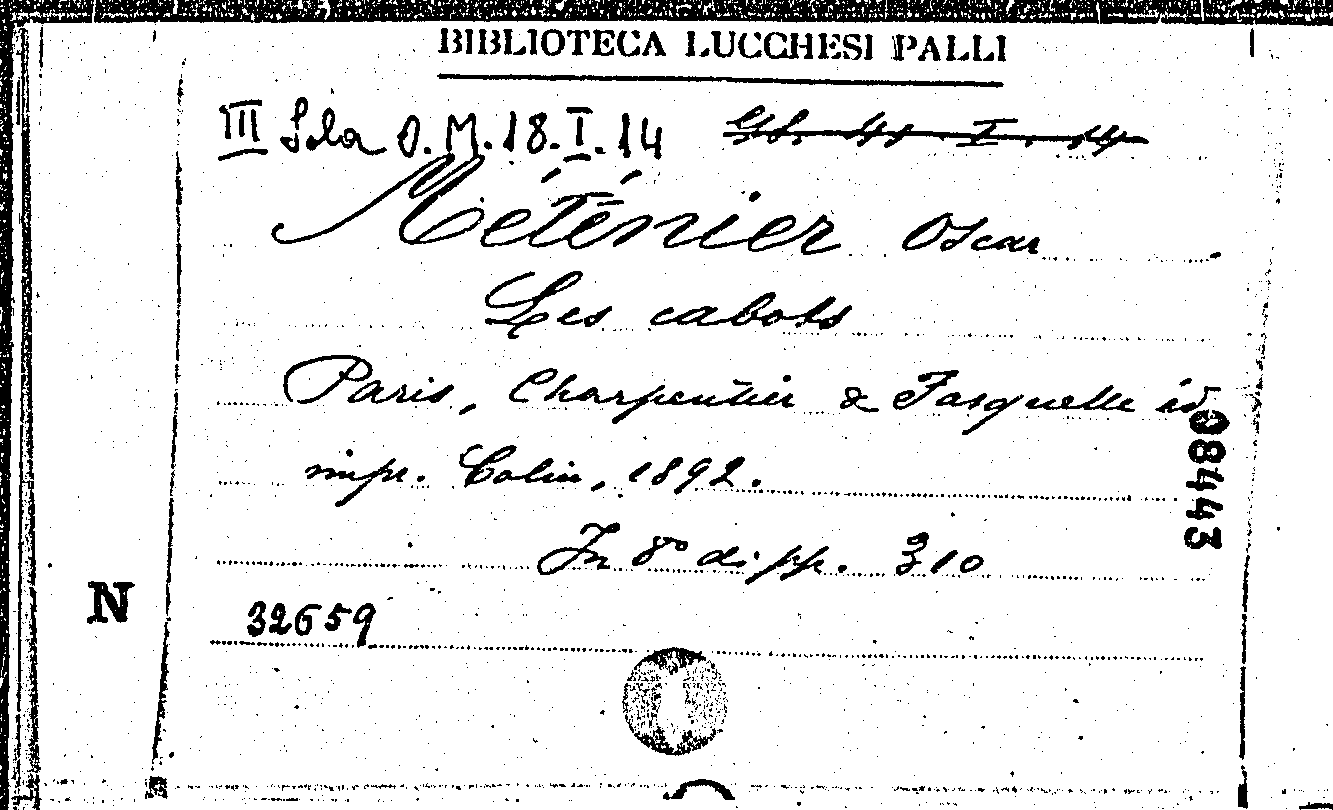 BIBLIOTECA LUCCHESI PALLI
III Sala O.M.18.I.14
Méténier Oscar
Les cabots
Paris, Charpentier & Fasquelle éd
impr. Colin, 1892.
In 8° di pp. 310
08443
N
32659